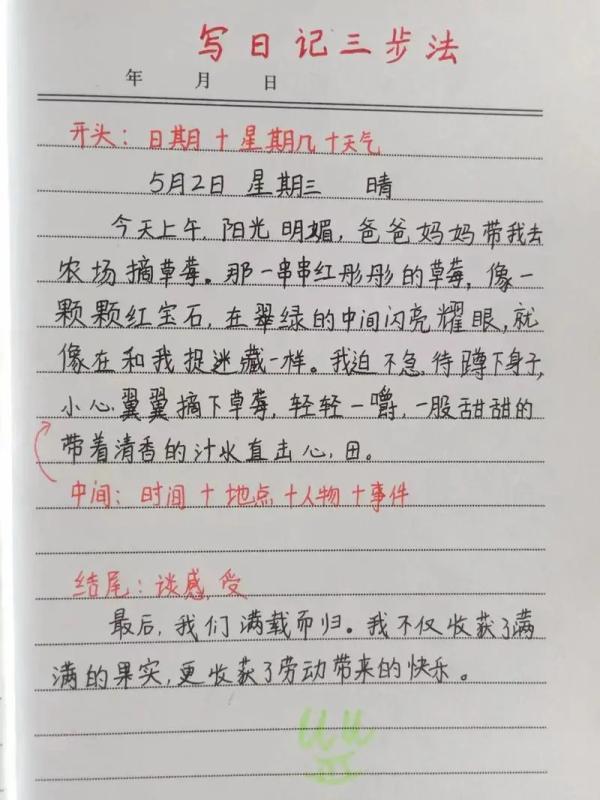 写日记三步法
年 月 日
开头：日期+星期几+天气
5月2日 星期三 晴
今天上午，阳光明媚，爸爸妈妈带我去
农场摘草莓。那一串串红彤彤的草莓，像一
颗颗红宝石，在翠绿的中间闪亮耀眼，就
像在和我捉迷藏一样。我迫不急待蹲下身子，
小心翼翼摘下草莓，轻轻一嚼，一股甜甜的
带着清香的汁水直击心田。
中间：时间+地点+人物+事件
结尾：谈感受
最后，我们满载而归。我不仅收获了满
满的果实，更收获了劳动带来的快乐。